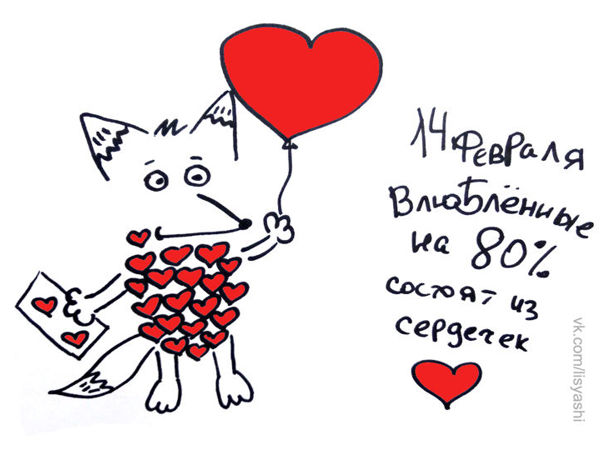 14 февраля
Влюблённые
на 80%
состоят из
сердечек
vk.com/lisyashi